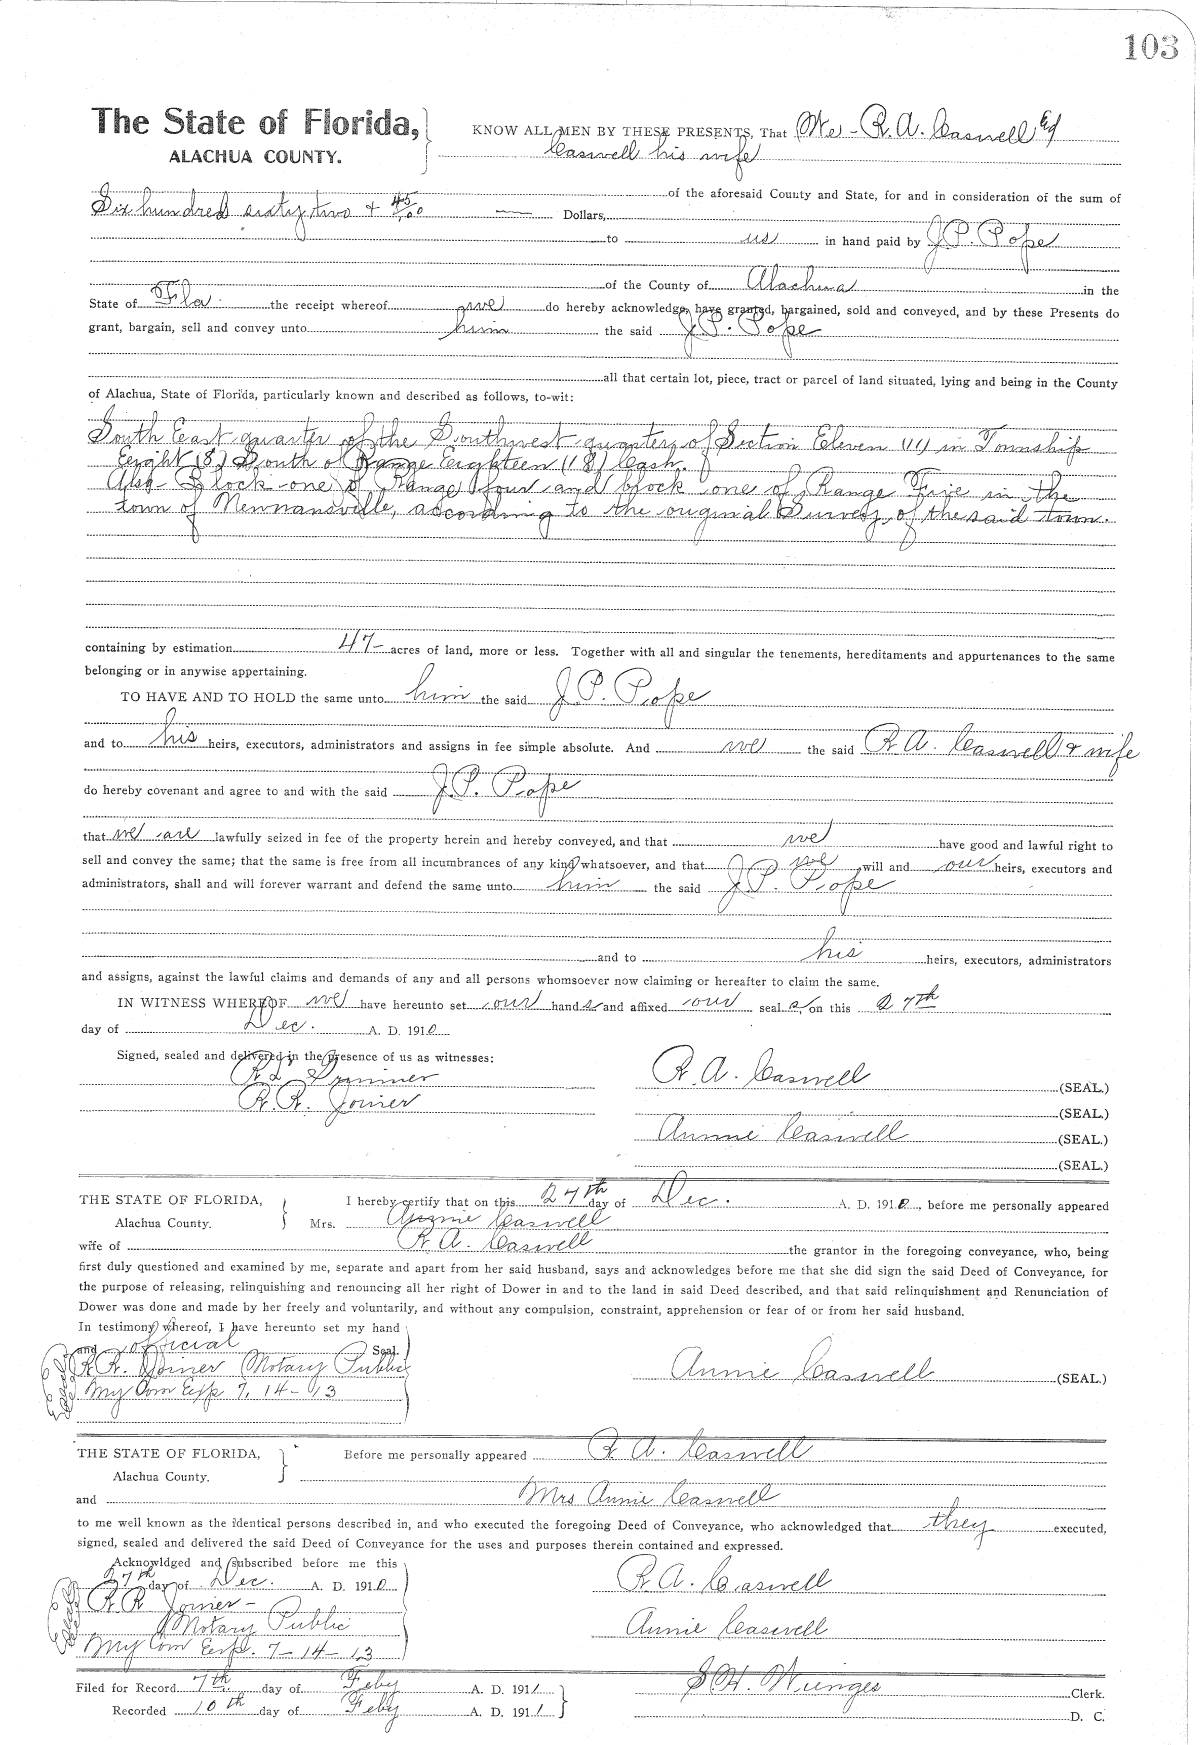 103
The State of Florida,
ALACHUA COUNTY.
KNOW ALL MEN BY THESE PRESENTS, That We - R. A. Caswell
Caswell his wife
of the aforesaid County and State, for and in consideration of the sum of
Six hundred sixty two + 45/100 Dollars,
to us in hand paid by J. P. Pope
of the County of Alachua in the
State of Fla. the receipt whereof we do hereby acknowledge, have granted, bargained, sold and conveyed, and by these Presents do
grant, bargain, sell and convey unto him the said J. P. Pope
all that certain lot, piece, tract or parcel of land situated, lying and being in the County
of Alachua, State of Florida, particularly known and described as follows, to-wit:
South East quarter of the Southwest quarter of Section Eleven (11) in Township
Eight (8) South of Range Eighteen (18) East.
Also Block one of Range four and block one of Range Five in the
town of Newnansville, according to the original Survey of the said town.
containing by estimation 47- acres of land, more or less. Together with all and singular the tenements, hereditaments and appurtenances to the same
belonging or in anywise appertaining.
TO HAVE AND TO HOLD the same unto him the said J. P. Pope
and to his heirs, executors, administrators and assigns in fee simple absolute. And we the said R. A. Caswell & wife
do hereby covenant and agree to and with the said J. P. Pope
that we are lawfully seized in fee of the property herein and hereby conveyed, and that we have good and lawful right to
sell and convey the same; that the same is free from all incumbrances of any kind whatsoever, and that we will and our heirs, executors and
administrators, shall and will forever warrant and defend the same unto him the said J. P. Pope
and to his heirs, executors, administrators
and assigns, against the lawful claims and demands of any and all persons whomsoever now claiming or hereafter to claim the same.
IN WITNESS WHEREOF we have hereunto set our hands and affixed our seals, on this 27th
day of Dec. A. D. 1910
Signed, sealed and delivered in the presence of us as witnesses:
R. A. Caswell (SEAL.)
R. R. Joiner
(SEAL.)
Annie Caswell (SEAL.)
(SEAL.)
THE STATE OF FLORIDA,
Alachua County.
I hereby certify that on this 27th day of Dec. A. D. 1910, before me personally appeared
Mrs. Annie Caswell
wife of R. A. Caswell the grantor in the foregoing conveyance, who, being
first duly questioned and examined by me, separate and apart from her said husband, says and acknowledges before me that she did sign the said Deed of Conveyance, for
the purpose of releasing, relinquishing and renouncing all her right of Dower in and to the land in said Deed described, and that said relinquishment and Renunciation of
Dower was done and made by her freely and voluntarily, and without any compulsion, constraint, apprehension or fear of or from her said husband.
In testimony whereof, I have hereunto set my hand
and official Seal.
R. R. Joiner Notary Public
My Com Exp 7, 14-13
Annie Caswell (SEAL.)
THE STATE OF FLORIDA,
Alachua County.
Before me personally appeared R. A. Caswell
and Mrs Annie Caswell
to me well known as the identical persons described in, and who executed the foregoing Deed of Conveyance, who acknowledged that they executed,
signed, sealed and delivered the said Deed of Conveyance for the uses and purposes therein contained and expressed.
Acknowldged and subscribed before me this
27th day of Dec. A. D. 1910
R. R. Joiner -
Notary Public
My Com Exp. 7-14-13
R. A. Caswell
Annie Caswell
Filed for Record 7th day of Feby A. D. 1911
S. H. Wienges Clerk.
Recorded 10th day of Feby A. D. 1911
D. C.